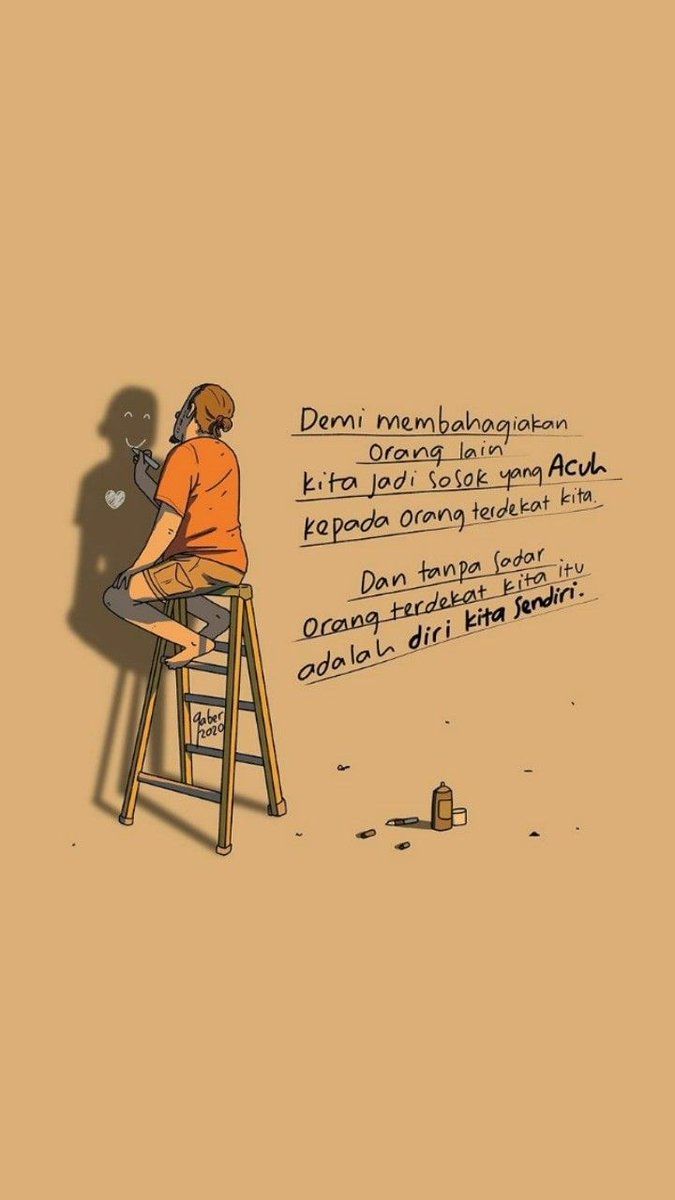 Demi membahagiakan
orang lain
kita jadi sosok yang Acuh
kepada orang terdekat kita.
Dan tanpa sadar
orang terdekat kita itu
adalah diri kita sendiri.
gaber
2020